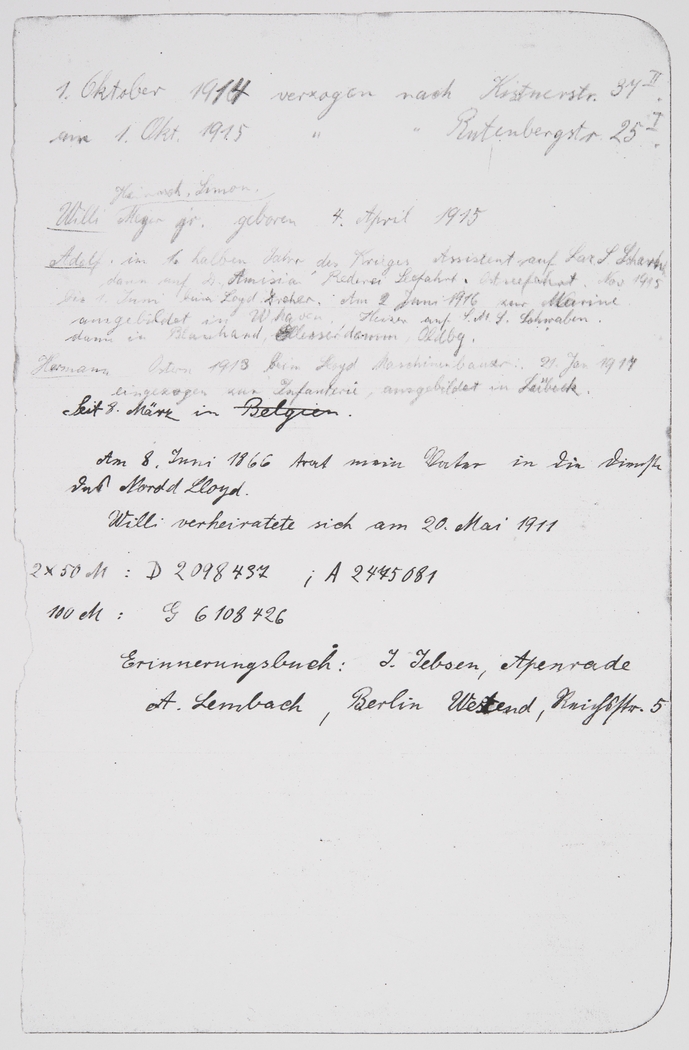 1. Oktober 1914 verzogen nach Kistnerstr. 37 II.
am 1. Okt. 1915 " " Rutenbergstr. 25 I.
Heinrich, Simon.
Willi Meyer jr. geboren 4. April 1915
Adolf. im halben Jahre des Krieges Assistent auf Laz. S.
dann auf D. "Amisia" Rederei Seefahrt. Ostseefahrt. Nov 1915
bis 1. Juni beim Loyd Am 2 Juni 1916 zur Marine
ausgebildet in W'haven. Heizer auf S.M.S. Schwaben.
dann in Blauhand, Oldbg.
Hermann Ostern 1913 beim Lloyd Maschinenbauer. 21. Jan 1917
eingezogen zur Infanterie, ausgebildet in Lübeck.
Seit 8. März in Belgien.
Am 8. Juni 1866 trat mein Vater in die Dienste
des Nordd Lloyd.
Willi verheiratete sich am 20. Mai 1911
2 x 50 M : D 2098437 ; A 2475081
100 M : G 6108426
Erinnerungsbuch: J. Jebsen, Apenrade
A. Lembach, Berlin Westend, Reichsstr. 5